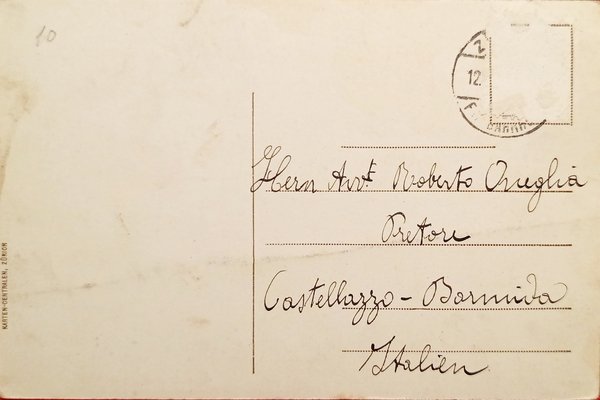 10
12.
Herrn Avvt Roberto Oneglia
Pretore
Castellazzo - Bormida
Italien
KARTEN-CENTRALEN, ZÜRICH